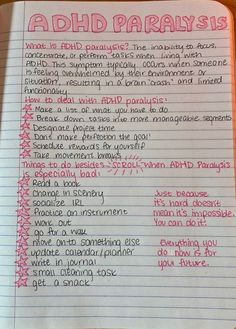 ADHD PARALYSIS
What is ADHD paralysis? The inability to focus,
concentrate, or perform tasks when living with
ADHD. This symptom typically occurs when someone
is feeling overwhelmed by their environment or
situation, resulting in a brain "crash" and limited
functionality.
How to deal with ADHD paralysis:
Make a list of what you have to do
Break down tasks into more manageable segments
Designate project time
Don't make perfection the goal!
Schedule rewards for yourself
Take movement breaks
Things to do besides SCROLL when ADHD Paralysis
is especially bad:
Read a book
Change in scenery
socialize IRL
Practice an instrument
work out
go for a walk
move on to something else
update calendar/planner
write in journal
small cleaning task
get a snack!
Just because
it's hard doesn't
mean it's impossible.
You can do it!
Everything you
do now is for
your future.